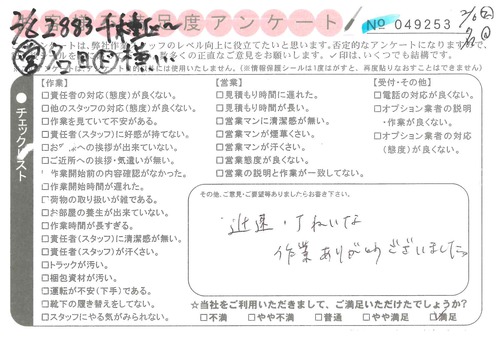 足度アンケート
No 049253
アンケートは、弊社作業・スタッフのレベル向上に役立てたいと思います。否定的なアンケートになりますが、
多くの率直なご意見をお願いします。✓印は、いくつでも結構です。
的には使用いたしません。（※情報保護シールは1度はがすと、再度貼りなおすことはできません）
チェックリスト
【作業】
□責任者の対応（態度）が良くない。
□他のスタッフの対応（態度）が良くない。
□作業を見ていて不安がある。
□責任者（スタッフ）に好感が持てない。
への挨拶が出来ていない。
□ご近所への挨拶・気遣いが無い。
作業開始前の内容確認がなかった。
□作業開始時間が遅れた。
荷物の取り扱いが雑である。
□お部屋の養生が出来ていない。
□作業時間が長すぎる。
□責任者（スタッフ）に清潔感が無い。
□責任者（スタッフ）が汗くさい。
□トラックが汚い。
□梱包資材が汚い。
□運転が不安（下手）である。
□靴下の履き替えをしてない。
□スタッフにやる気がみられない。
【営業】
□見積もり時間に遅れた。
□見積もり時間が長い。
□営業マンに清潔感が無い。
□営業マンが煙草くさい。
□営業マンが汗くさい。
□営業態度が良くない。
□営業の説明と作業が一致してない。
【受付・その他】
□電話の対応が良くない。
□オプション業者の説明
・作業が良くない。
□オプション業者の対応
（態度）が良くない。
その他、ご意見・ご要望等ありましたらお書き下さい。
迅速・ていねいな
作業ありがとうございました。
☆当社をご利用いただきまして、ご満足いただけたでしょうか？
□不満 □やや不満 □普通 □やや満足 満足